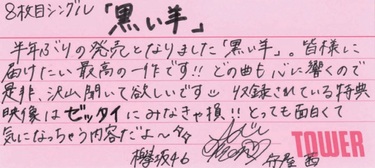 8枚目シングル「黒い羊」
半年ぶりの発売となりました「黒い羊」。皆様に
届けたい最高の一作です!! どの曲も心に響くので
是非、沢山聞いて欲しいです 収録されている特典
映像はゼッタイにみなきゃ損!! とっても面白くて
気になっちゃう内容だよ〜
欅坂46
TOWER